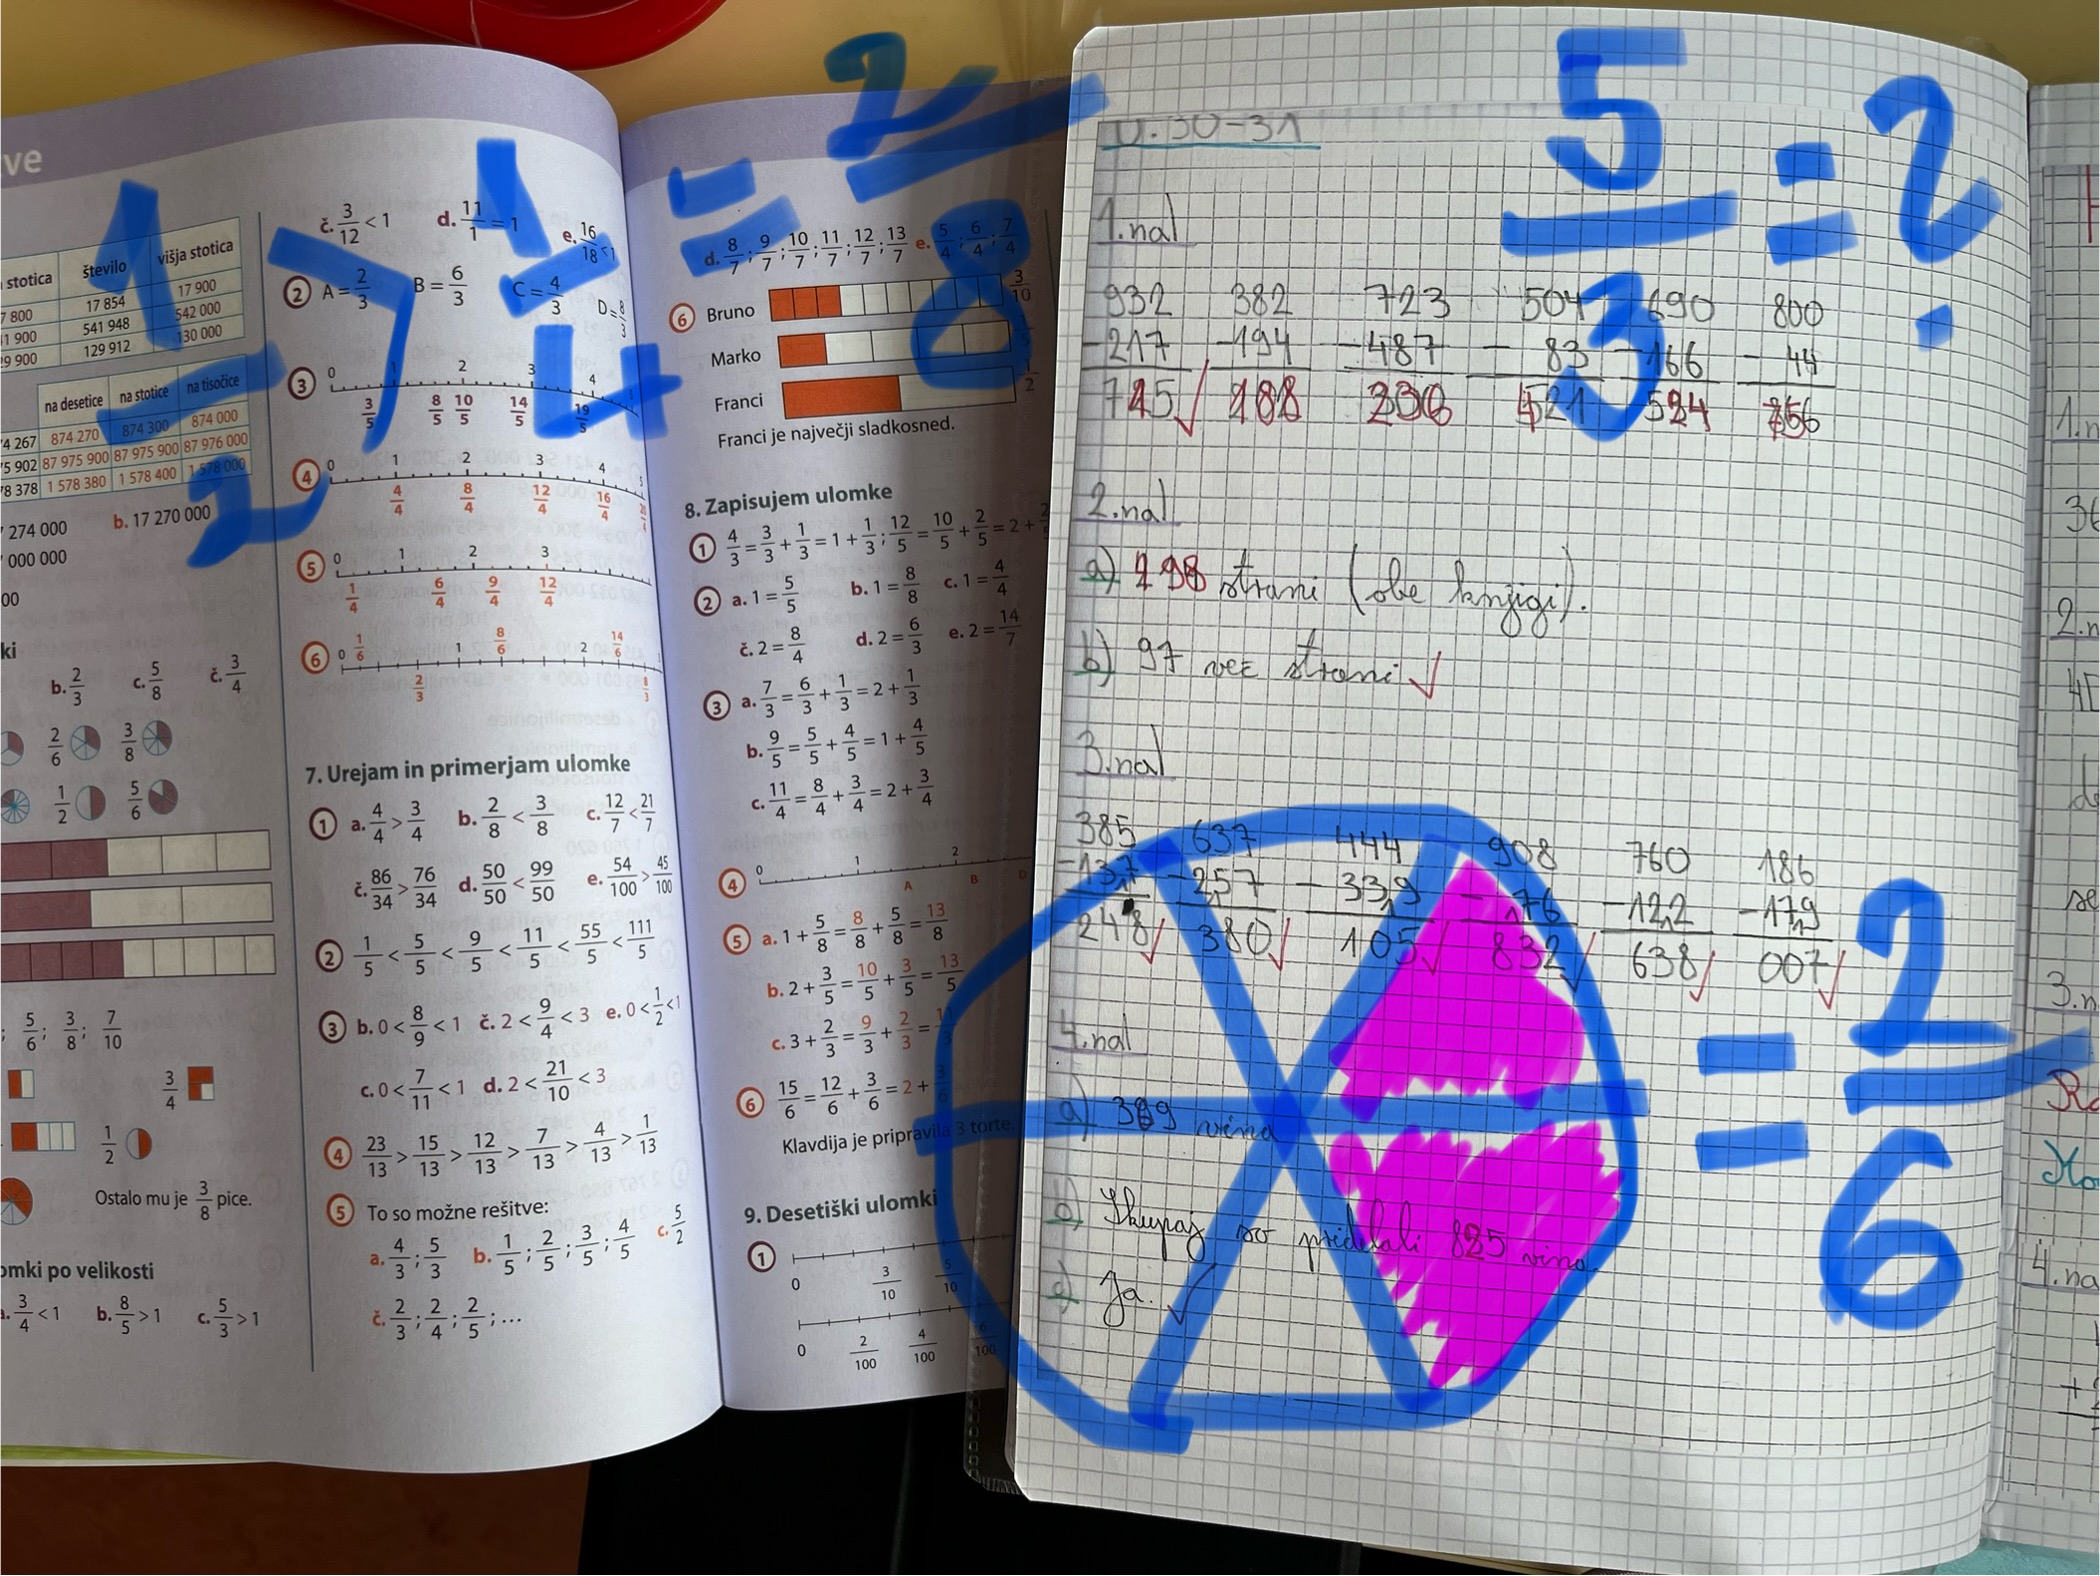 ve
stotica število višja stotica
7 800 17 854 17 900
41 900 541 948 542 000
29 900 129 912 130 000
na desetice na stotice na tisočice
4 267 874 270 874 300 874 000
5 902 87 975 900 87 975 900 87 976 000
78 378 1 578 380 1 578 400 1 578 000
274 000 b. 17 270 000
000 000
00
ki
b. 2/3 c. 5/8 č. 3/4
2/6 3/8
1/2 5/6
; 5/6; 3/8; 7/10
3/4
1/2
Ostalo mu je 3/8 pice.
omki po velikosti
a. 3/4 < 1 b. 8/5 > 1 c. 5/3 > 1
č. 3/12 < 1 d. 11/1 = 1 e. 16/18 < 1
2 A = 2/3 B = 6/3 C = 4/3 D = 8/3
3 0 1 2 3 4
3/5 8/5 10/5 14/5 19/5
4 0 1 2 3 4 5
4/4 8/4 12/4 16/4
5 0 1 2 3
1/4 6/4 9/4 12/4
6 0 1/6 1 8/6 2 14/6
2/3 8/3
7. Urejam in primerjam ulomke
1 a. 4/4 > 3/4 b. 2/8 < 3/8 c. 12/7 < 21/7
č. 86/34 > 76/34 d. 50/50 < 99/50 e. 54/100 > 45/100
2 1/5 < 5/5 < 9/5 < 11/5 < 55/5 < 111/5
3 b. 0 < 8/9 < 1 č. 2 < 9/4 < 3 e. 0 < 1/2 < 1
c. 0 < 7/11 < 1 d. 2 < 21/10 < 3
4 23/13 > 15/13 > 12/13 > 7/13 > 4/13 > 1/13
5 To so možne rešitve:
a. 4/3; 5/3 b. 1/5; 2/5; 3/5; 4/5 c. 5/2
č. 2/3; 2/4; 2/5; ...
d. 8/7; 9/7; 10/7; 11/7; 12/7; 13/7 e. 5/4; 6/4; 7/4
6 Bruno 3/10
Marko
Franci 1/2
Franci je največji sladkosned.
8. Zapisujem ulomke
1 4/3 = 3/3 + 1/3 = 1 + 1/3; 12/5 = 10/5 + 2/5 = 2 +
2 a. 1 = 5/5 b. 1 = 8/8 c. 1 = 4/4
č. 2 = 8/4 d. 2 = 6/3 e. 2 = 14/7
3 a. 7/3 = 6/3 + 1/3 = 2 + 1/3
b. 9/5 = 5/5 + 4/5 = 1 + 4/5
c. 11/4 = 8/4 + 3/4 = 2 + 3/4
4 0 1 2
A B D
5 a. 1 + 5/8 = 8/8 + 5/8 = 13/8
b. 2 + 3/5 = 10/5 + 3/5 = 13/5
c. 3 + 2/3 = 9/3 + 2/3 =
6 15/6 = 12/6 + 3/6 = 2 +
Klavdija je pripravila 3 torte.
9. Desetiški ulomki
1 0 3/10 5/10
0 2/100 4/100 6/100
1/2 7 1/4 = 2/8
5/3 = ?
U. 30-31
1.nal
932 382 723 504 690 800
-217 -194 -487 - 83 -166 - 44
715 188 236 421 524 756
2.nal
a) 298 strani (obe knjigi).
b) 97 več strani
3.nal
385 637 444 908 760 186
-137 -257 -339 - 76 -122 -179
248 380 105 832 638 007
4.nal
a) 389 vina
b) Skupaj so pridelali 825 vina.
c) Ja.
= 2/6
1.n
2.n
3.n
4.na